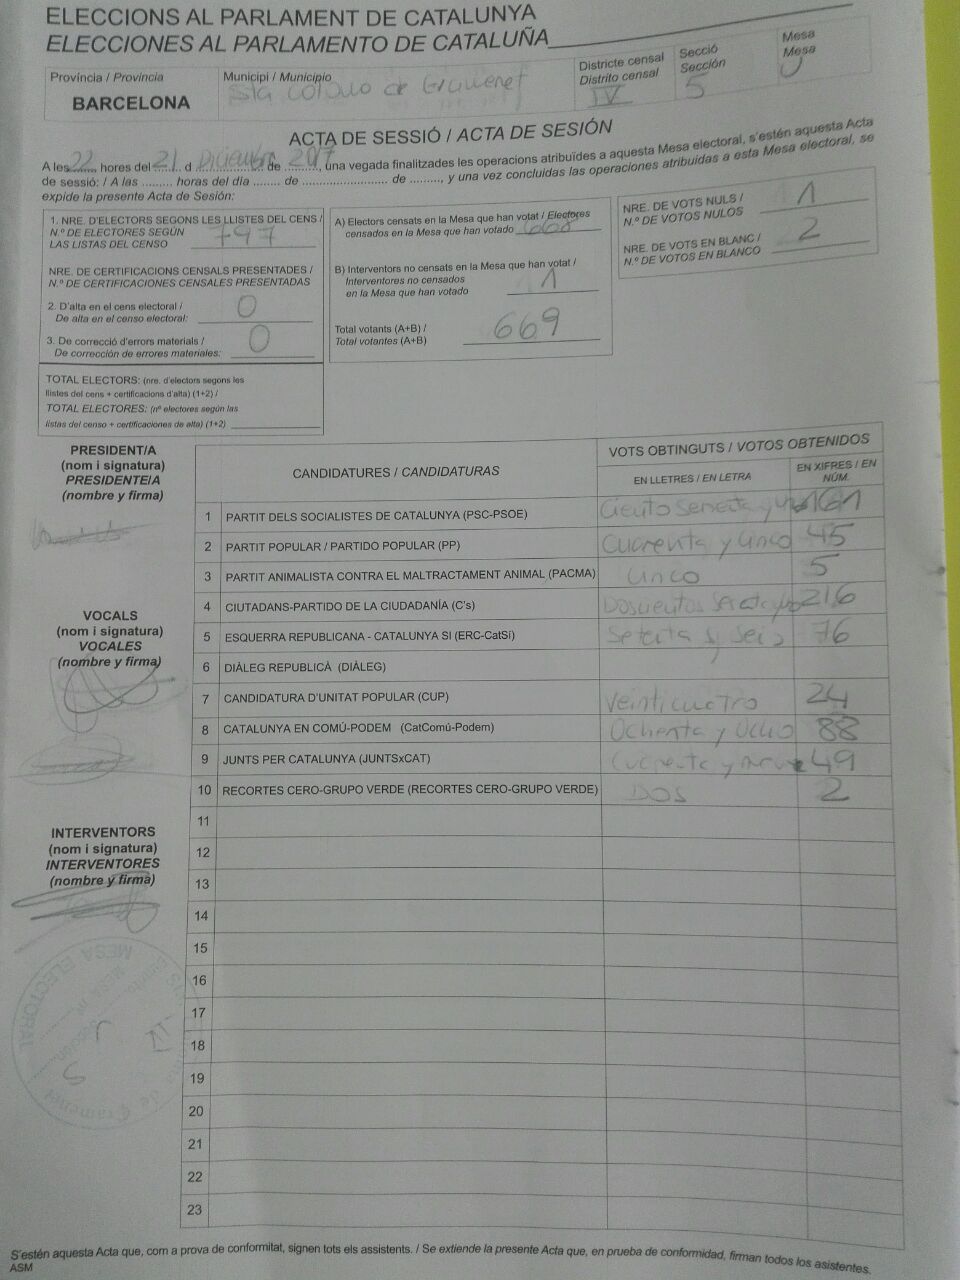 ELECCIONS AL PARLAMENT DE CATALUNYA
ELECCIONES AL PARLAMENTO DE CATALUÑA
Província / Provincia
BARCELONA
Municipi / Municipio
Sta Coloma de Gramenet
Districte censal
Distrito censal
IV
Secció
Sección
5
Mesa
Mesa
U
ACTA DE SESSIÓ / ACTA DE SESIÓN
A les 22 hores del 21 d Diciembre de 2017, una vegada finalitzades les operacions atribuïdes a aquesta Mesa electoral, s'estén aquesta Acta
de sessió: / A las ......... horas del día ........ de .......................... de .........., y una vez concluidas las operaciones atribuidas a esta Mesa electoral, se
expide la presente Acta de Sesión:
1. NRE. D'ELECTORS SEGONS LES LLISTES DEL CENS /
N.º DE ELECTORES SEGÚN
LAS LISTAS DEL CENSO 797
NRE. DE CERTIFICACIONS CENSALS PRESENTADES /
N.º DE CERTIFICACIONES CENSALES PRESENTADAS
2. D'alta en el cens electoral /
De alta en el censo electoral: 0
3. De correcció d'errors materials /
De corrección de errores materiales: 0
TOTAL ELECTORS: (nre. d'electors segons les
llistes del cens + certificacions d'alta) (1+2) /
TOTAL ELECTORES: (nº electores según las
listas del censo + certificaciones de alta) (1+2)
A) Electors censats en la Mesa que han votat / Electores
censados en la Mesa que han votado 668
B) Interventors no censats en la Mesa que han votat /
Interventores no censados
en la Mesa que han votado 1
Total votants (A+B) /
Total votantes (A+B) 669
NRE. DE VOTS NULS /
N.º DE VOTOS NULOS 1
NRE. DE VOTS EN BLANC /
N.º DE VOTOS EN BLANCO 2
PRESIDENT/A
(nom i signatura)
PRESIDENTE/A
(nombre y firma)
VOCALS
(nom i signatura)
VOCALES
(nombre y firma)
INTERVENTORS
(nom i signatura)
INTERVENTORES
(nombre y firma)
CANDIDATURES / CANDIDATURAS
VOTS OBTINGUTS / VOTOS OBTENIDOS
EN LLETRES / EN LETRA
EN XIFRES / EN
NÚM.
1 PARTIT DELS SOCIALISTES DE CATALUNYA (PSC-PSOE) Ciento y 161
2 PARTIT POPULAR / PARTIDO POPULAR (PP) Cuarenta y Cinco 45
3 PARTIT ANIMALISTA CONTRA EL MALTRACTAMENT ANIMAL (PACMA) Cinco 5
4 CIUTADANS-PARTIDO DE LA CIUDADANÍA (C's) 216
5 ESQUERRA REPUBLICANA - CATALUNYA SÍ (ERC-CatSí) Setenta y Seis 76
6 DIÀLEG REPUBLICÀ (DIÀLEG)
7 CANDIDATURA D'UNITAT POPULAR (CUP) Veinticuatro 24
8 CATALUNYA EN COMÚ-PODEM (CatComú-Podem) Ochenta y Ocho 88
9 JUNTS PER CATALUNYA (JUNTSxCAT) Cuarenta y nueve 49
10 RECORTES CERO-GRUPO VERDE (RECORTES CERO-GRUPO VERDE) DOS 2
11
12
13
14
15
16
17
18
19
20
21
22
23
MESA ELECTORAL
IV
5
de Gramenet
S'estén aquesta Acta que, com a prova de conformitat, signen tots els assistents. / Se extiende la presente Acta que, en prueba de conformidad, firman todos los asistentes.
ASM